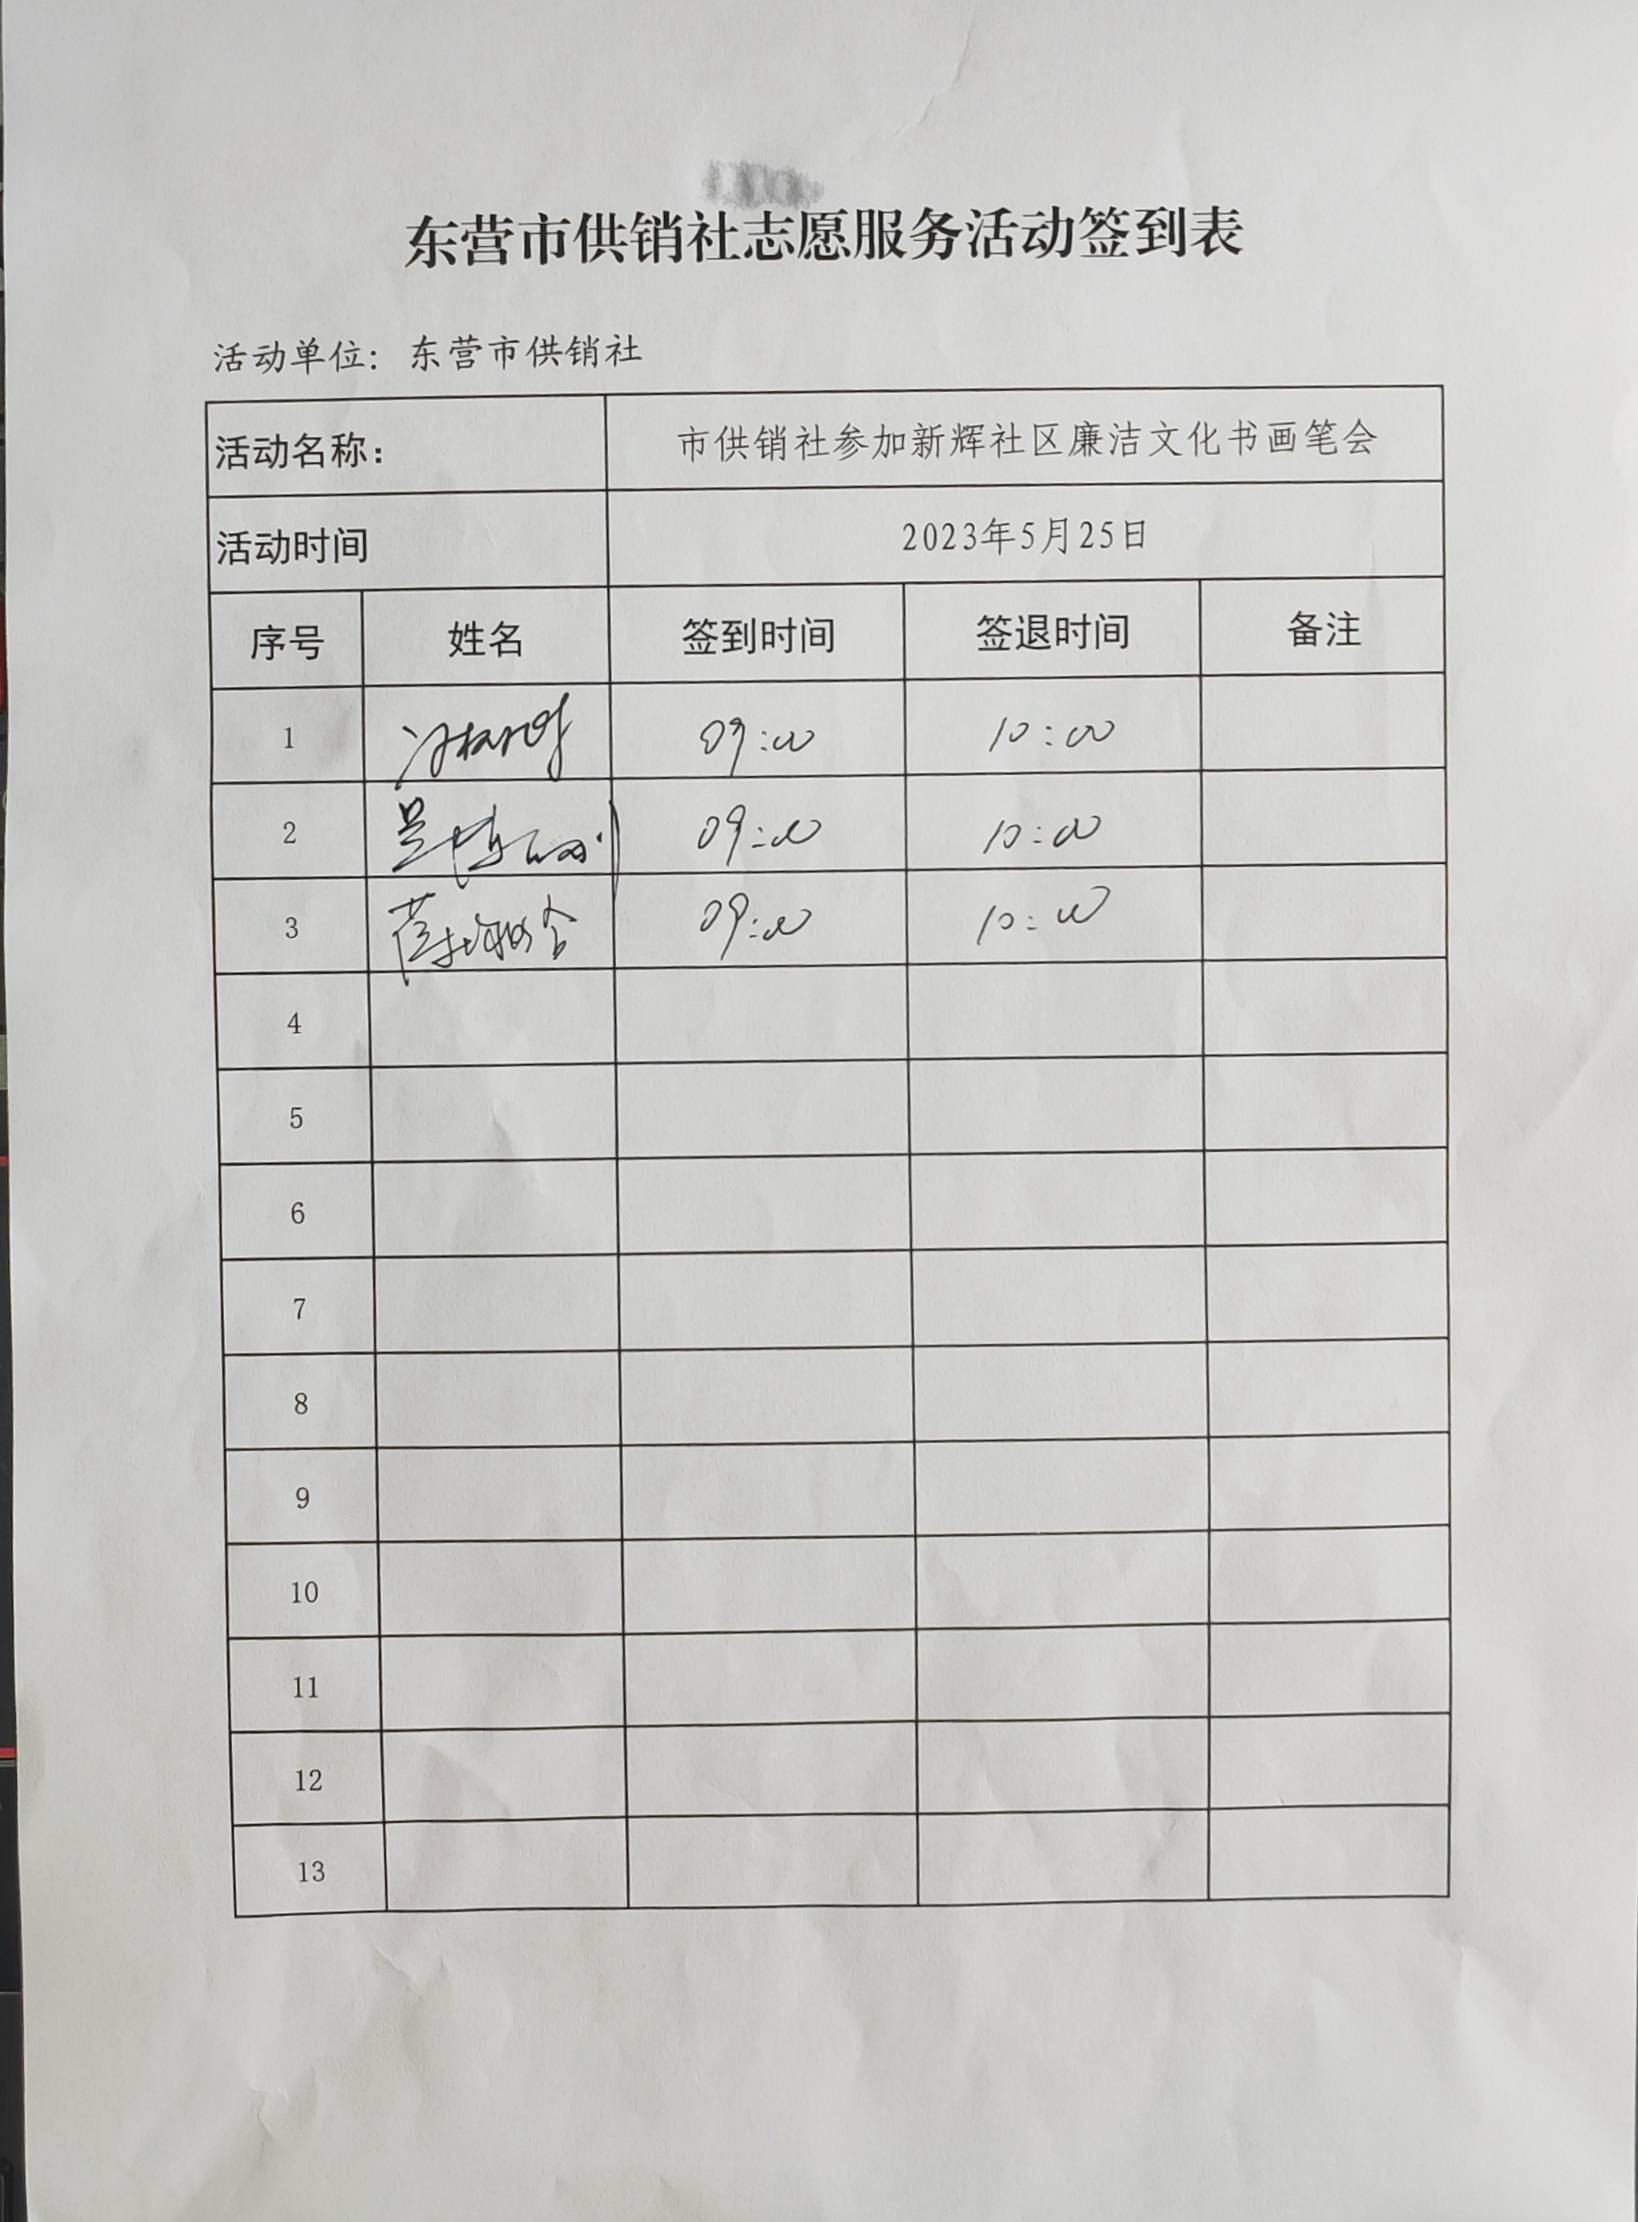 东营市供销社志愿服务活动签到表
活动单位：东营市供销社
活动名称： 市供销社参加新辉社区廉洁文化书画笔会
活动时间 2023年5月25日
序号 姓名 签到时间 签退时间 备注
1 09:00 10:00
2 09:00 10:00
3 09:00 10:00
4
5
6
7
8
9
10
11
12
13